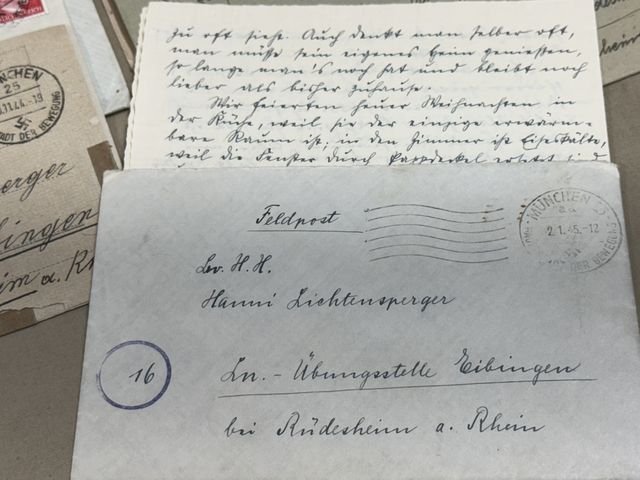 zu oft siehe. Auch denkt man selber oft,
man müsse sein eigenes Heim geniessen,
so lange man's noch hat und bleibt noch
lieber als bisher zuhause.
Wir feierten heuer Weihnachten in
der Küche, weil sie der einzige erwärm-
bare Raum ist; in den Zimmern ist Eiseskälte,
weil die Fenster durch Pappdeckel ersetzt sind
MÜNCHEN
25
.11.44.-19
STADT DER BEWEGUNG
erger
ingen
im a. Rh
Feldpost
MÜNCHEN
2.1.45.-12
DER BEWEGUNG
H.H.
Hanni Lichtensperger
16
Ln.-Übungsstelle Eibingen
bei Rüdesheim a. Rhein